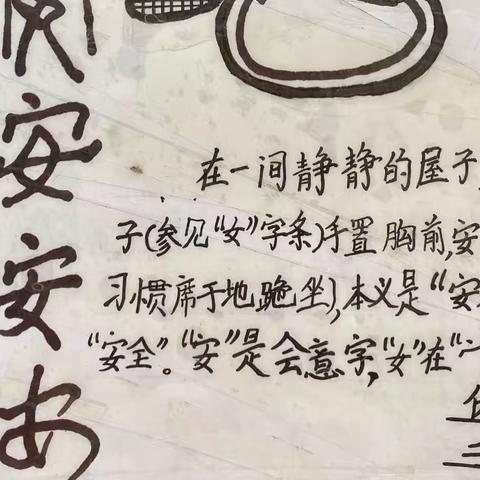 安
安
安
在一间静静的屋子
子(参见“女”字条)手置胸前,安
习惯席于地跪坐),本义是“安
“安全”。“安”是会意字,“女”在“宀
三